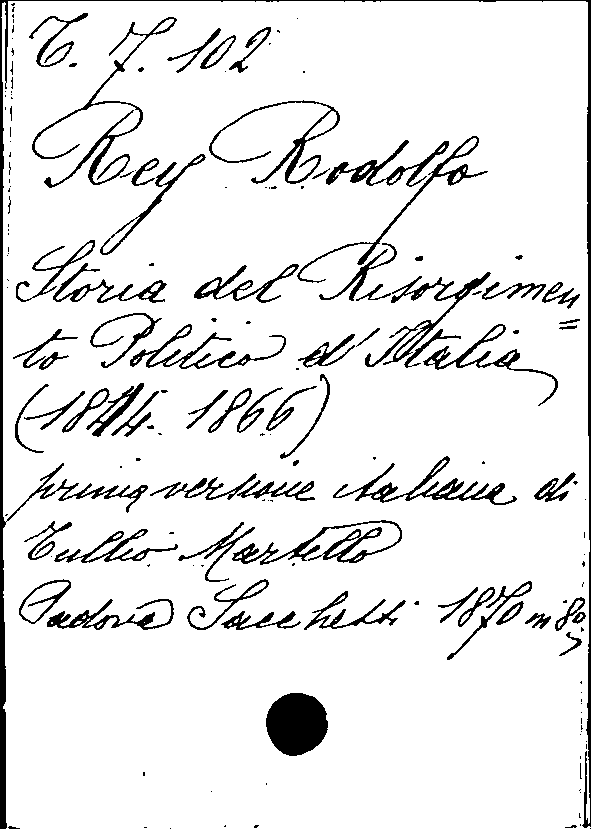 T. 7. 102
Rey Rodolfo
Storia del Risorgimen=
to Politico d'Italia
(1814-1866)
prima versione italiana di
Tullio Martello
Padova Sacchetti 1870 in 8º